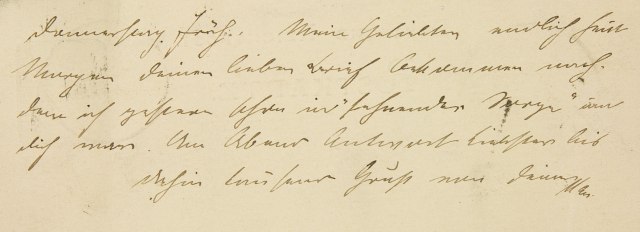 Donnerstag Früh. Mein Geliebter endlich heut
Morgen deinen lieben Brief bekommen nach-
dem ich gestern schon in "sehnender Sorge" um
dich war. Am Abend Antwort liebster bis
dahin tausend Gruß von deiner